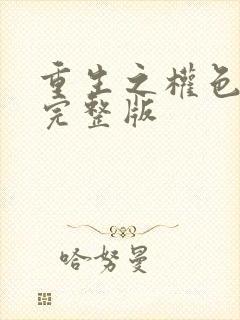 重生之權色
完整版
哈努曼